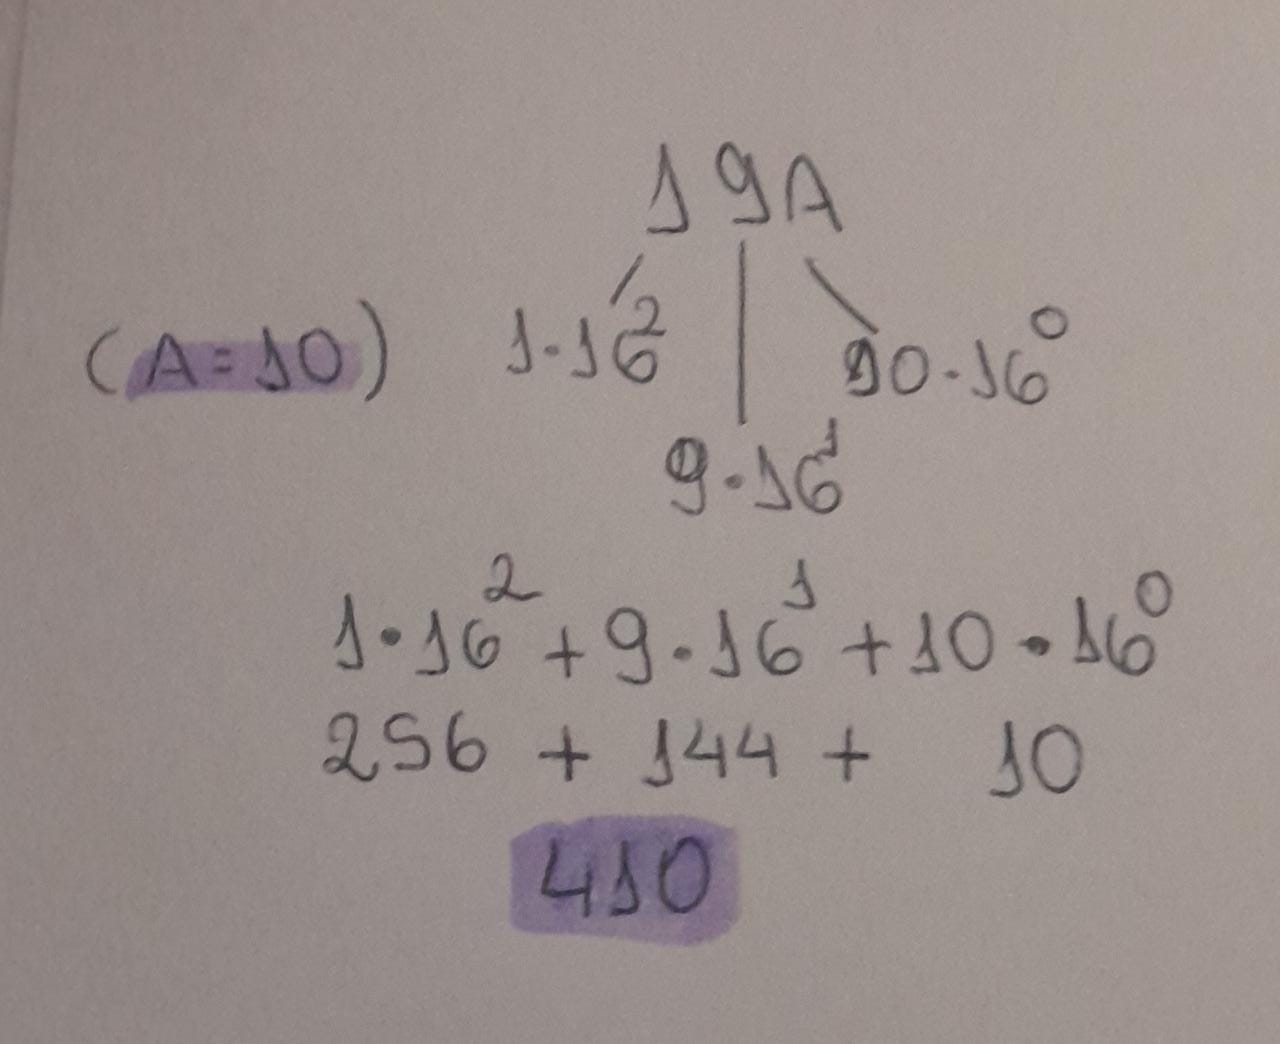 19A
(A=10) 1·16² 10·16⁰
9·16¹
1·16² + 9·16¹ + 10·16⁰
256 + 144 + 10
410